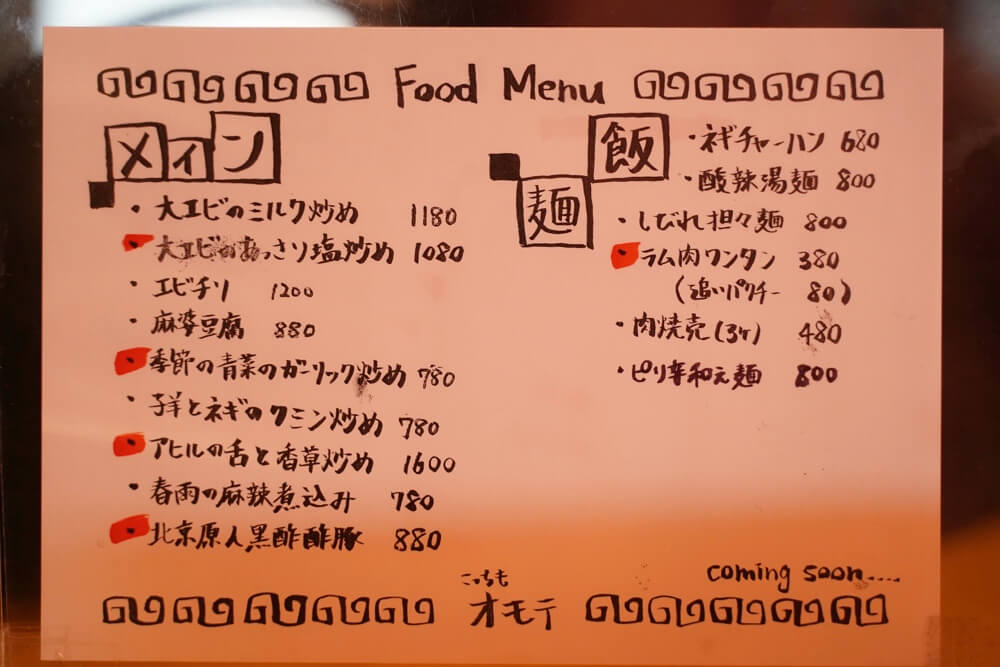 Food Menu
メイン
・大エビのミルク炒め 1180
・大エビのあっさり塩炒め 1080
・エビチリ 1200
・麻婆豆腐 880
・季節の青菜のガーリック炒め 780
・子羊とネギのクミン炒め 780
・アヒルの舌と香草炒め 1600
・春雨の麻辣煮込み 780
・北京原人黒酢酢豚 880
飯
麺
・ネギチャーハン 680
・酸辣湯麺 800
・しびれ担々麺 800
・ラム肉ワンタン 380
(追いパクチー 80)
・肉焼売(3ヶ) 480
・ピリ辛和え麺 800
coming soon....
こっちも
オモテ